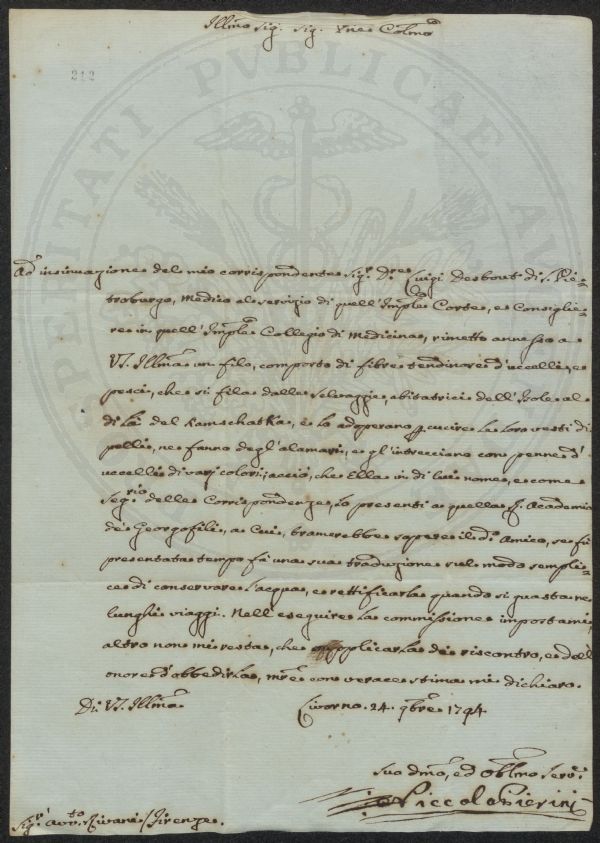 Illmo Sig. Sig. Pne Colmo
212
PROSPERITATI PUBLICAE AU
Ad insinuazione del mio corrispondente Sigr. Dre Luigi Desbout di S. Pie-
troburgo, Medico al servizio di quell'Imple Corte, e Consiglie-
re in quell'Imple Collegio di Medicina, rimetto annesso a
VS. Illma un filo, composto di fibre tendinose d'uccelli, e
pesci, che si fila dalle Selvaggie, abitatrici dell'Isole al
di là del Kamschatka, e lo adoperano p cucire le loro vesti di
pelli, ne fanno degl'alamari, e gl'intrecciano con penne d'
uccelli di varj colori; acciò, che Ella in di lui nome, e come
Segrio delle Corrispondenze, lo presenti a quella R. Academia
de' Georgofili, a cui, bramerebbe sapere il do Amico, se fù
presentata tempo fà una sua traduzione sul modo sempli-
ce di conservare l'acqua, e rettificarla quando si guasta ne
lunghi viaggi. Nell'eseguire la commissione importami,
altro non mi resta, che supplicarla de riscontro, e dell'
onore d'obbedirla, mre con verace stima mi dichiaro.
Di VS. Illma
Livorno. 24. 9bre 1794
Suo dmo, ed Obbmo Serve
Piccola Pierini
Sigr Avvto Rivani / Firenze.